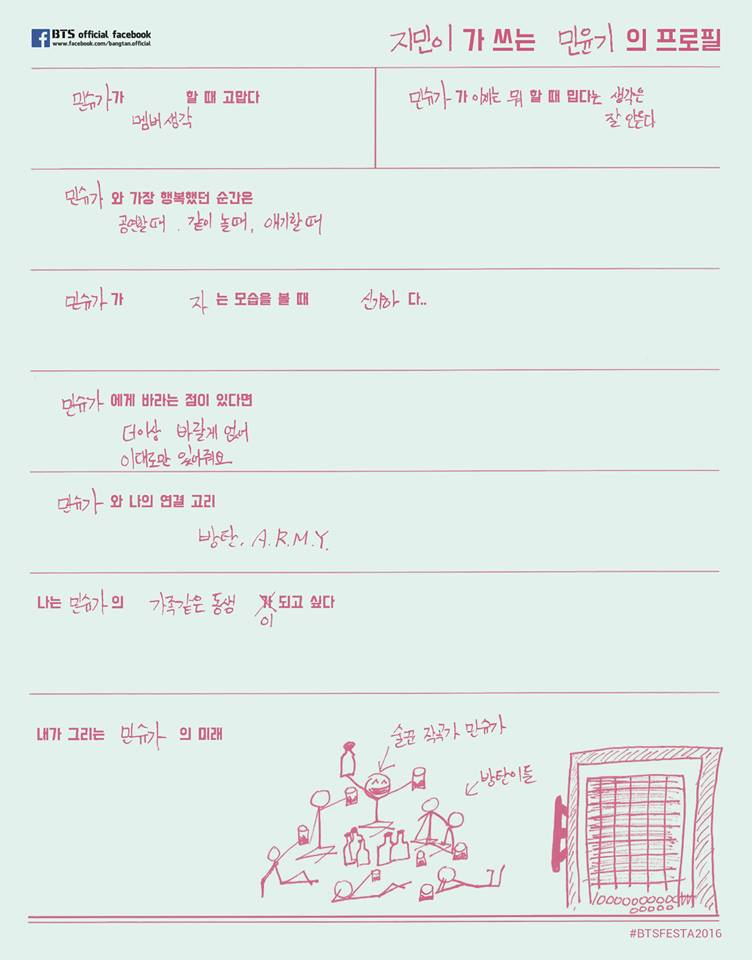 BTS official facebook
www.facebook.com/bangtan.official
지민이 가 쓰는 민윤기 의 프로필
민슈가가 할 때 고맙다
멤버 생각
민슈가 가 이제는 뭐 할 때 밉다는 생각은
잘 안든다
민슈가 와 가장 행복했던 순간은
공연할때, 같이 놀때, 얘기할때
민슈가 가 자 는 모습을 볼 때 신기하 다..
민슈가 에게 바라는 점이 있다면
더이상 바랄게 없어
이대로만 있어줘요
민슈가 와 나의 연결 고리
방탄, A.R.M.Y.
나는 민슈가 의 가족같은 동생 가 되고 싶다
이
내가 그리는 민슈가 의 미래
술꾼 작곡가 민슈가
방탄이들
#BTSFESTA2016